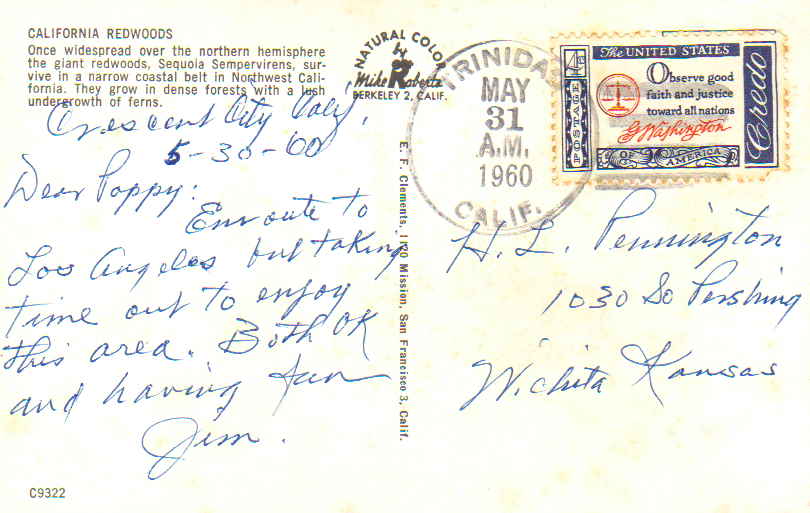 CALIFORNIA REDWOODS
Once widespread over the northern hemisphere
the giant redwoods, Sequoia Sempervirens, sur-
vive in a narrow coastal belt in Northwest Cali-
fornia. They grow in dense forests with a lush
undergrowth of ferns.
Crescent City Calif.
5-30-60
Dear Poppy:
Enroute to
Los Angeles but taking
time out to enjoy
this area. Both OK
and having fun
Jim.
C9322
NATURAL COLOR
by
Mike Roberts
BERKELEY 2, CALIF.
E. F. Clements, 1130 Mission, San Francisco 3, Calif.
TRINIDAD
MAY
31
A.M.
1960
CALIF.
4¢
POSTAGE
The UNITED STATES
Observe good
faith and justice
toward all nations
G Washington
OF AMERICA
Credo
H. L. Pennington
1030 So Pershing
Wichita Kansas